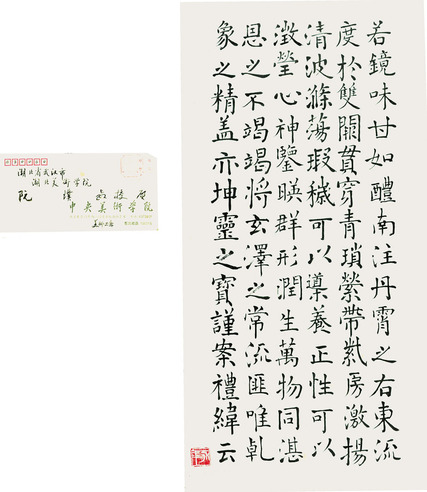 若鏡味甘如醴南注丹霄之右東流
度於雙闕貫穿青瑣縈帶紫房激揚
清波滌蕩瑕穢可以導養正性可以
澂瑩心神鑒暎群形潤生萬物同湛
恩之不竭竭將玄澤之常流匪唯乹
象之精盖亦坤靈之寶謹案禮緯云
湖北省武汉市
湖北美术学院
阮 璞 教授 启
中央美術學院